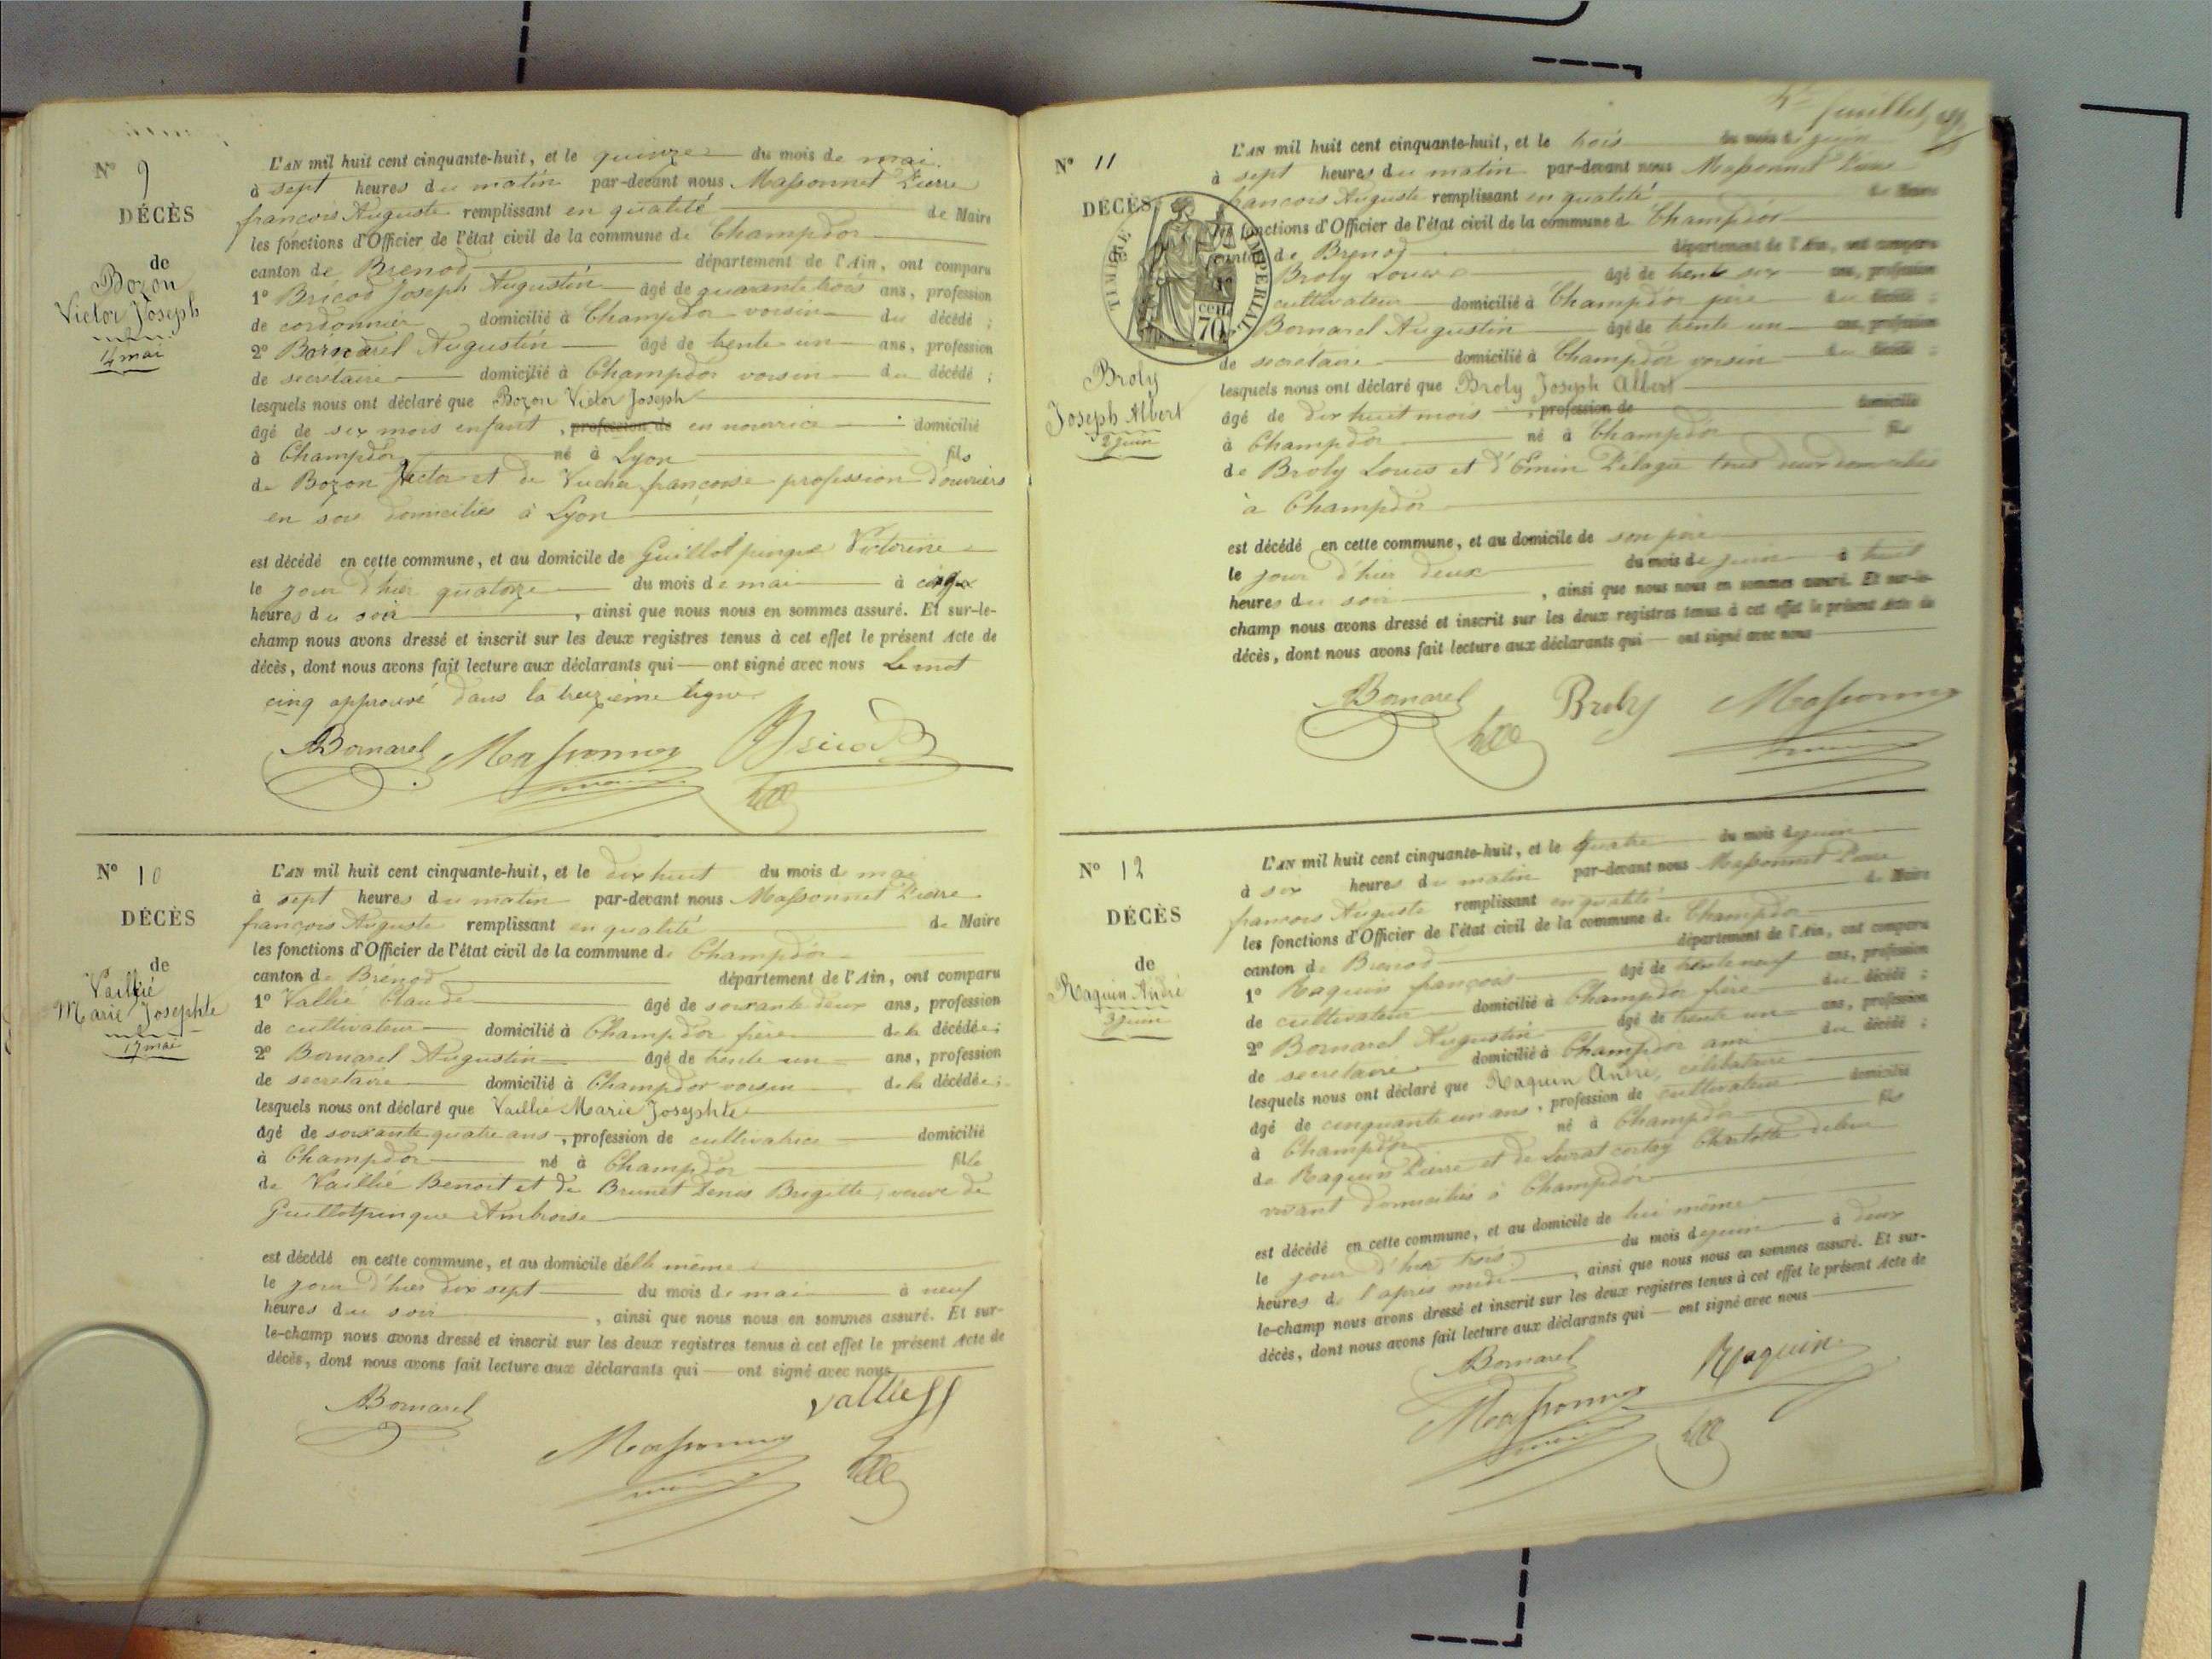 N° 9
DÉCÈS
de
Bozon
Victor Joseph
14 mai
L'AN mil huit cent cinquante-huit, et le quinze du mois de mai
à sept heures du matin par-devant nous Massonnet Pierre
françois Auguste remplissant en qualité de Maire
les fonctions d'Officier de l'état civil de la commune de Champdor
canton de Brenod département de l'Ain, ont comparu
1° Bricod Joseph Augustin âgé de quarante trois ans, profession
de cordonnier domicilié à Champdor voisin du décédé ;
2° Bornarel Augustin âgé de trente un ans, profession
de secretaire domicilié à Champdor voisin du décédé ;
lesquels nous ont déclaré que Bozon Victor Joseph
âgé de six mois enfant , profession de en nourrice domicilié
à Champdor né à Lyon fils
de Bozon Victor et de Vucher françoise profession d'ouvriers
en soie domiciliés à Lyon
est décédé en cette commune, et au domicile de Guillotpinque Victorine
le jour d'hier quatorze du mois de mai à cinq
heures du soir , ainsi que nous nous en sommes assuré. Et sur-le-
champ nous avons dressé et inscrit sur les deux registres tenus à cet effet le présent Acte de
décès, dont nous avons fait lecture aux déclarants qui ont signé avec nous Le mot
cinq approuvé dans la treizième ligne
Bornarel Massonnet Bricod
N° 10
DÉCÈS
de
Vaillié
Marie Josephte
17 mai
L'AN mil huit cent cinquante-huit, et le dix huit du mois de mai
à sept heures du matin par-devant nous Massonnet Pierre
françois Auguste remplissant en qualité de Maire
les fonctions d'Officier de l'état civil de la commune de Champdor
canton de Brénod département de l'Ain, ont comparu
1° Vallié Claude âgé de soixante deux ans, profession
de cultivateur domicilié à Champdor frère de la décédée ;
2° Bornarel Augustin âgé de trente un ans, profession
de secretaire domicilié à Champdor voisin de la décédée ;
lesquels nous ont déclaré que Vaillié Marie Josephte
âgé de soixante quatre ans, profession de cultivatrice domicilié
à Champdor né à Champdor fille
de Vaillié Benoit et de Brunet Denis Brigitte, veuve de
Guillotpinque Ambroise
est décédé en cette commune, et au domicile d'elle même
le jour d'hier dix sept du mois de mai à neuf
heures du soir , ainsi que nous nous en sommes assuré. Et sur-
le-champ nous avons dressé et inscrit sur les deux registres tenus à cet effet le présent Acte de
décès, dont nous avons fait lecture aux déclarants qui ont signé avec nous
Bornarel Vallié
Massonnet
feuillet
N° 11
DÉCÈS
TIMBRE IMPERIAL
70 cen.
Broly
Joseph Albert
2 juin
L'AN mil huit cent cinquante-huit, et le trois du mois de juin
à sept heures du matin par-devant nous Massonnet Pierre
francois Auguste remplissant en qualité de Maire
les fonctions d'Officier de l'état civil de la commune de Champdor
canton de Brenod département de l'Ain, ont comparu
Broly Louis âgé de trente six ans, profession
cultivateur domicilié à Champdor père du décédé ;
Bornarel Augustin âgé de trente un ans, profession
de secrétaire domicilié à Champdor voisin du décédé ;
lesquels nous ont déclaré que Broly Joseph Albert
âgé de dix huit mois , profession de domicilié
à Champdor né à Champdor fils
de Broly Louis et d'Emin Pélagie tous deux domiciliés
à Champdor
est décédé en cette commune, et au domicile de son père
le jour d'hier deux du mois de juin à huit
heures du soir , ainsi que nous nous en sommes assuré. Et sur-le-
champ nous avons dressé et inscrit sur les deux registres tenus à cet effet le présent Acte de
décès, dont nous avons fait lecture aux déclarants qui ont signé avec nous
Bornarel Broly Massonnet
N° 12
DÉCÈS
de
Raquin André
3 juin
L'AN mil huit cent cinquante-huit, et le quatre du mois de juin
à six heures du matin par-devant nous Massonnet Pierre
francois Auguste remplissant en qualité de Maire
les fonctions d'Officier de l'état civil de la commune de Champdor
canton de Brenod département de l'Ain, ont comparu
1° Raquin françois âgé de trente neuf ans, profession
de cultivateur domicilié à Champdor frère du décédé ;
2° Bornarel Augustin âgé de trente un ans, profession
de secretaire domicilié à Champdor ami du décédé ;
lesquels nous ont déclaré que Raquin André, célibataire
âgé de cinquante un ans, profession de cultivateur domicilié
à Champdor né à Champdor fils
de Raquin Pierre et de Charlotte de leur
vivant domiciliés à Champdor
est décédé en cette commune, et au domicile de lui même
le jour d'hier trois du mois de juin à deux
heures de l'après midi , ainsi que nous nous en sommes assuré. Et sur-
le-champ nous avons dressé et inscrit sur les deux registres tenus à cet effet le présent Acte de
décès, dont nous avons fait lecture aux déclarants qui ont signé avec nous
Bornarel Raquin
Massonnet